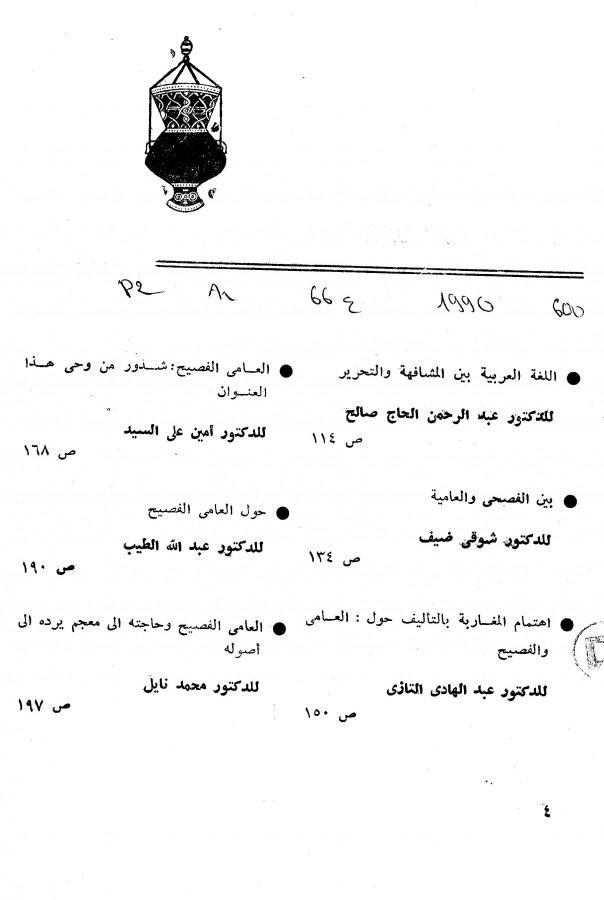 P2 Ar 66 ع 1990 600
● اللغة العربية بين المشافهة والتحرير
للدكتور عبد الرحمن الحاج صالح
ص ١١٤
● بين الفصحى والعامية
للدكتور شوقى ضيف
ص ١٣٤
● اهتمام المغاربة بالتأليف حول : العامى
والفصيح
للدكتور عبد الهادى التازى
ص ١٥٠
● العامى الفصيح: شذور من وحى هذا
العنوان
للدكتور أمين على السيد
ص ١٦٨
● حول العامى الفصيح
للدكتور عبد الله الطيب
ص ١٩٠
● العامى الفصيح وحاجته الى معجم يرده الى
أصوله
للدكتور محمد نايل
ص ١٩٧
٤